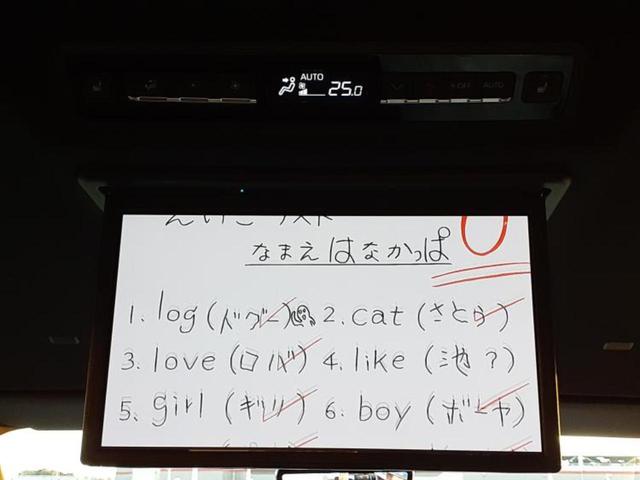 AUTO
25.0
OFF AUTO
えいごテスト
なまえ はなかっぱ 0
1. log (ドグー) 2. cat (さとう)
3. love (ロバ) 4. like (池?)
5. girl (ギリリ) 6. boy (ボーヤ)